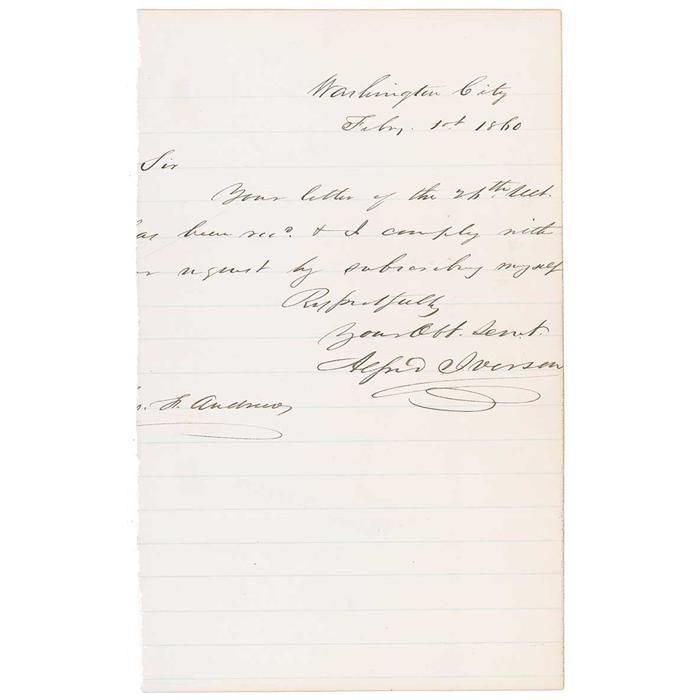 Washington City
Feby. 1st 1860
Sir
Your letter of the 26th Ult.
as been recd. & I comply with
r request by subscribing myself
Respectfully
Your Obt. Servt.
Alfred Iverson
s. F. Andrews